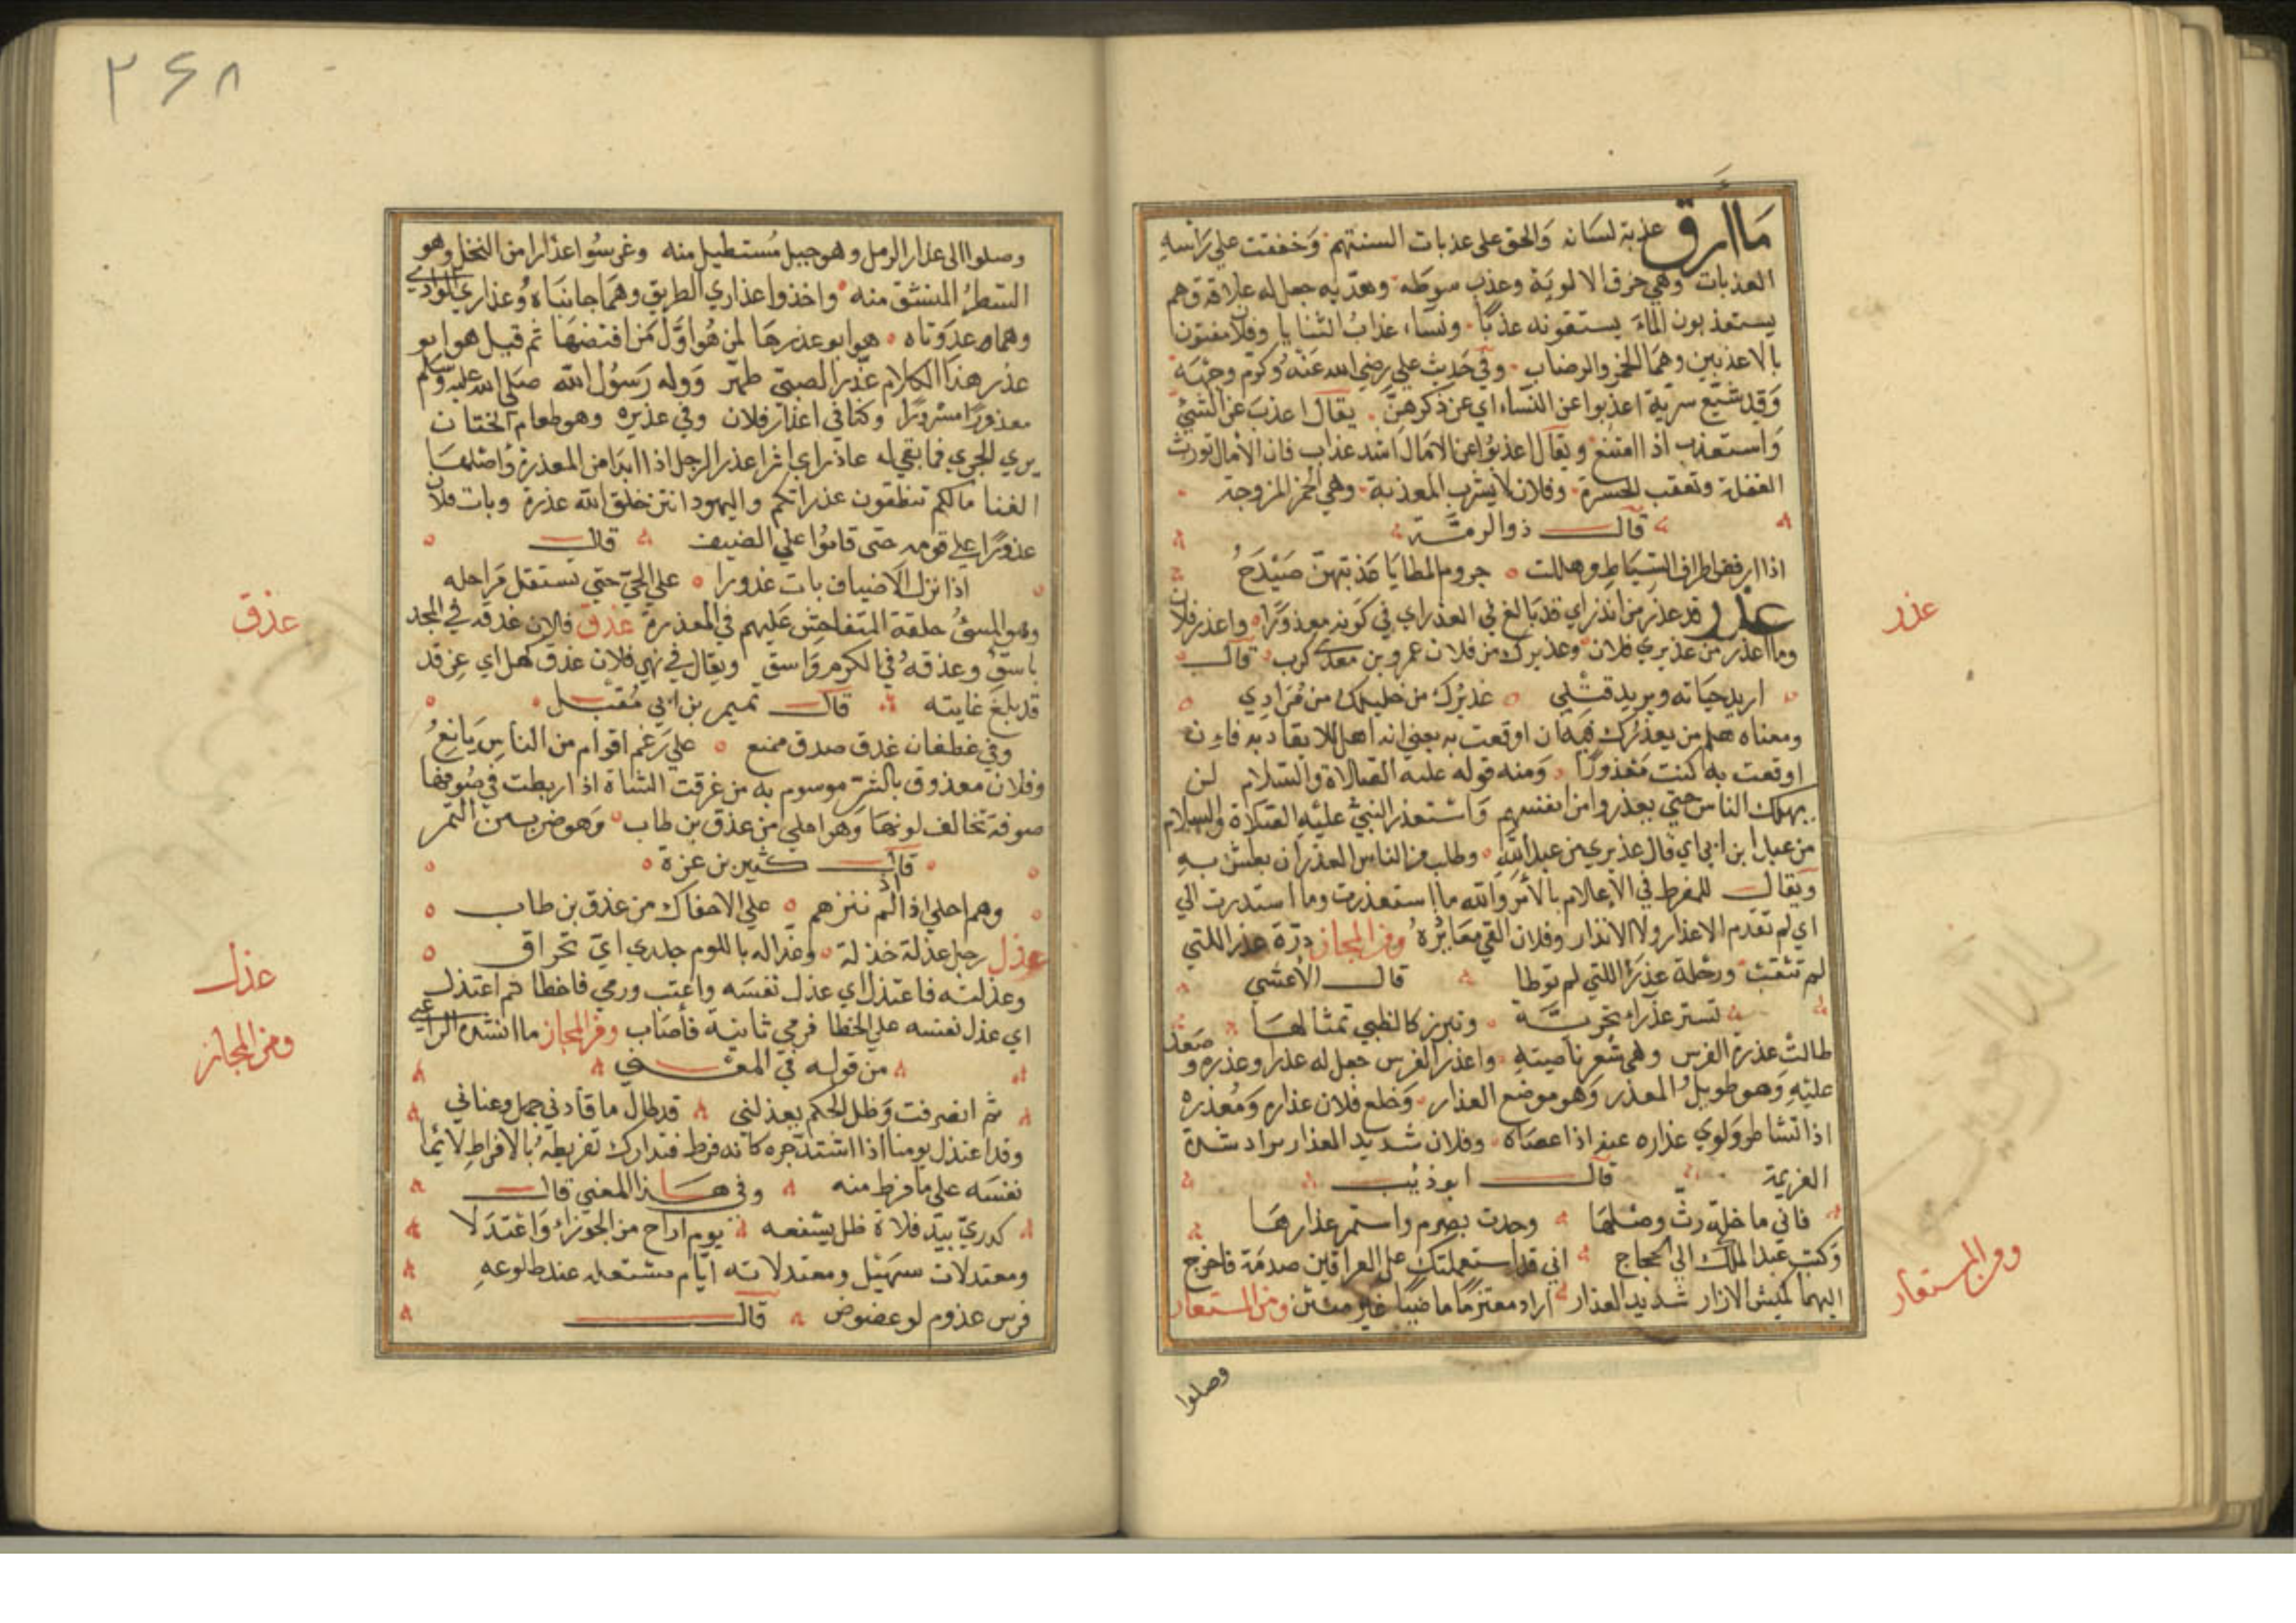 ما ارق عذبة لسانه والحق على عذبات السنتهم وخفقت على راسه
العذبات وهي خرق الالوية وعذب سوطه وهذبه جعل له علاقة وهم
يستعذبون الماء يستقونه عذبًا ونساء عذابُ الثنايا وفلان مفتون
بالاعذبين وهما الخمر والرضاب وفي حَديث علي رضي الله عَنْهُ وكرّم وجهَهُ
وَقد شيّع سريّة اعذبوا عن النساء اي عن ذكرهنّ يقالُ اعذبَ عن الشيء
وَاستعذب اذا امتنع ويقال اعذبُوا عن الامَال اشد عذاب فان الآمال تورث
الغفلة وتعقب الحسرة وفلان لا يشرب المعذبة وهي الخمر المزوجة
قالــ ذو الرمّــة
اذا ارفض اطراف السّيَاط وهللت جروم المطايَا عَذبتهنّ صَيْدَحُ
عذر قد عذر من انذر اي قد بَالغ في العذر اي في كونه معذوَرًا واعذر فلان
وما اعذر من عذيري فلان وعذيرك من فلان عمرو بن معدي كرب قال
اريد حيَاته ويريد قتلي عذيُرك من خليلك من مُرَادِي
ومعناه هلم من يعذُرك فيه ان اوقعت به يعني انه اهل للايقاد به فان
اوقعت به كنت مَعْذورًا وَمنه قوله عليه الصّلاة والسّلام لن
يهلك الناس حتي يعذروا من انفسهم وَاسْتعذر النبيّ عليْهِ الصّلاة والسلام
من عبد ابن ابي اي قال عذيري من عبد اللهِ وطلب من الناس العذر ان بطش به
وَيقالــ للمفرط في الاعلام بالأمر وَالله ما استعذرت وما استدرت الي
اي لم تقدم الاعذار ولا الانذار وفلان القي مَعَاذيرهُ ومن المجاز درّة عذرا اللتي
لم تثقبْ ورملة عذرَاء اللتي لم توطا قالــ الأعشي
تستر عذراء بحريّــة وتبرز كالظبي تمثالهَــا
طالتْ عذرة الفرس وهي شعر ناصيته واعذر الفرس جعل له عذرا وعذره وصَعد
عليْهِ وَهو طويل المعذر وَهو موضع العذار وَخلع فلان عذاره وَمُعذره
اذا تشاطر وَلوي عذاره عنه اذا عصَاه وفلان شديد العذار يراد شدة
العزيمة قالــــ ابو ذئيب
فاني ما خلّة رثّ وصْلهَا وجدت بصرم واستمر عذارهَا
وَكتب عبد الملك الي الحجاج اني قد استعملتك على العراقين صدمَة فاخرج
اليهما كميش الازار شديد العذار اراد معتزمًا ماضيًا غير مثنن ومن المستعار
وصلوا
عذر
ومن المستعار
۲۶۸
وصلوا الى عذار الرمل وهو جبل مُستطيل منه وغرسُوا عذارا من النخل وهو
السّطرُ المنشق منه واخذوا عذاري الطريق وهمَا جانبَاه وُعذاري الوادي
وهما عدوَتاه هو ابو عذرهَا لمن هُو اوَّل مَن افتضهَا ثم قيل هو ابو
عذر هذا الكلام عذر الصبيّ طهّر وَوله رَسُول الله صَلى الله عليه وسلم
معذورًا مسرورًا وكنا في اعذار فلان وفي عذيره وهو طعام الختان
يري الجري فما بقي له عاذر اي اثر اعذر الرجل اذا ابدا من المعذرة وُاصْلهَا
الفنا مَالكم تنظفون عذراتكم واليهود انتن خلق الله عذرة وبات فلان
عذورًا على قومه حتى قامُوا علي الضيف قالــ
اذا نزل الاضياف بات عذورا على الحيّ حتي تستقل مَراجله
وهو السيُ خلقه المتفاحش عَليهم في المعذرة عذق فلان عَذقه في المجد
باسقُ وعذقهُ في الكرم وَاسق ويقال في نبي فلان عذق كهل اي عِز قد
قد بلغ غايته قالــ تميم بن ابي مُقبــل
وفي غطفان عذق صدق ممنع علي رَغم اقوام من الناسِ يَانِعُ
وفلان معذوق بالشر موسوم به من عزقت الشاة اذا ربطت في صُوفها
صوفة تخالف لونهَا وَهو احلى من عذق بن طاب وَهو ضرب من التّمر
قالــ كثير بن عزة
وهم احلي اذا لم تنزهم علي الاحفاك من عذق بن طاب
عذل رجل عذلة خذلة وعذاله باللوم جلدي اي تحراق
وعذلته فاعتذل اي عذل نفسَه واعتب ورمي فاخطا ثم اعتذل
اي عذل نفسه علي الخطا فرمي ثانيَة فأصَاب ومن المجاز ما انشده الراعي
من قوله في المعْــني
ثم انصرفت وَظل الحكم يعذلني قد طال ما قادني جهل وعناني
وقد اعتذل يومنا اذا اشتد حره كانه فرط فتدارك تفريطه بُالافراطِ لائما
نفسَه علي ما فرط منه وفي هــذا المعنى قالــ
كدريّ بيد فلاة ظل يشفعه يوم اراح من الجوزاء وَاعْتدَلا
ومعتدلات سهَيْل ومعتدلاته ايّام مشتعلة عند طلوعهِ
فرس عذوم لو عضوض قالــ
عذق
عذل
ومن المجاز